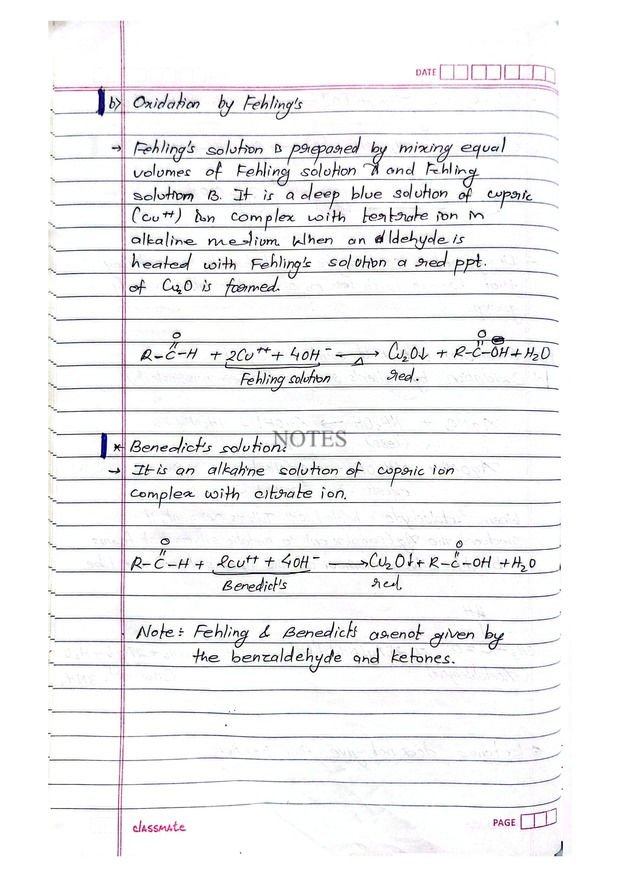 DATE
b) Oxidation by Fehling's
→ Fehling's solution is prepared by mixing equal
volumes of Fehling solution A and Fehling
solution B. It is a deep blue solution of cupric
(Cu++) ion complex with tertrate ion in
alkaline medium. When an aldehyde is
heated with Fehling's solution a red ppt.
of Cu2O is formed.
O
R-C-H + 2Cu++ + 4OH- → Δ Cu2O↓ + R-C-OH + H2O
Fehling solution red.
NOTES
* Benedict's solution:
→ It is an alkaline solution of cupric ion
complex with citrate ion.
O
R-C-H + 2Cu++ + 4OH- → Cu2O↓ + R-C-OH + H2O
Benedict's red.
Note: Fehling & Benedict's arenot given by
the benzaldehyde and ketones.
classmate
PAGE